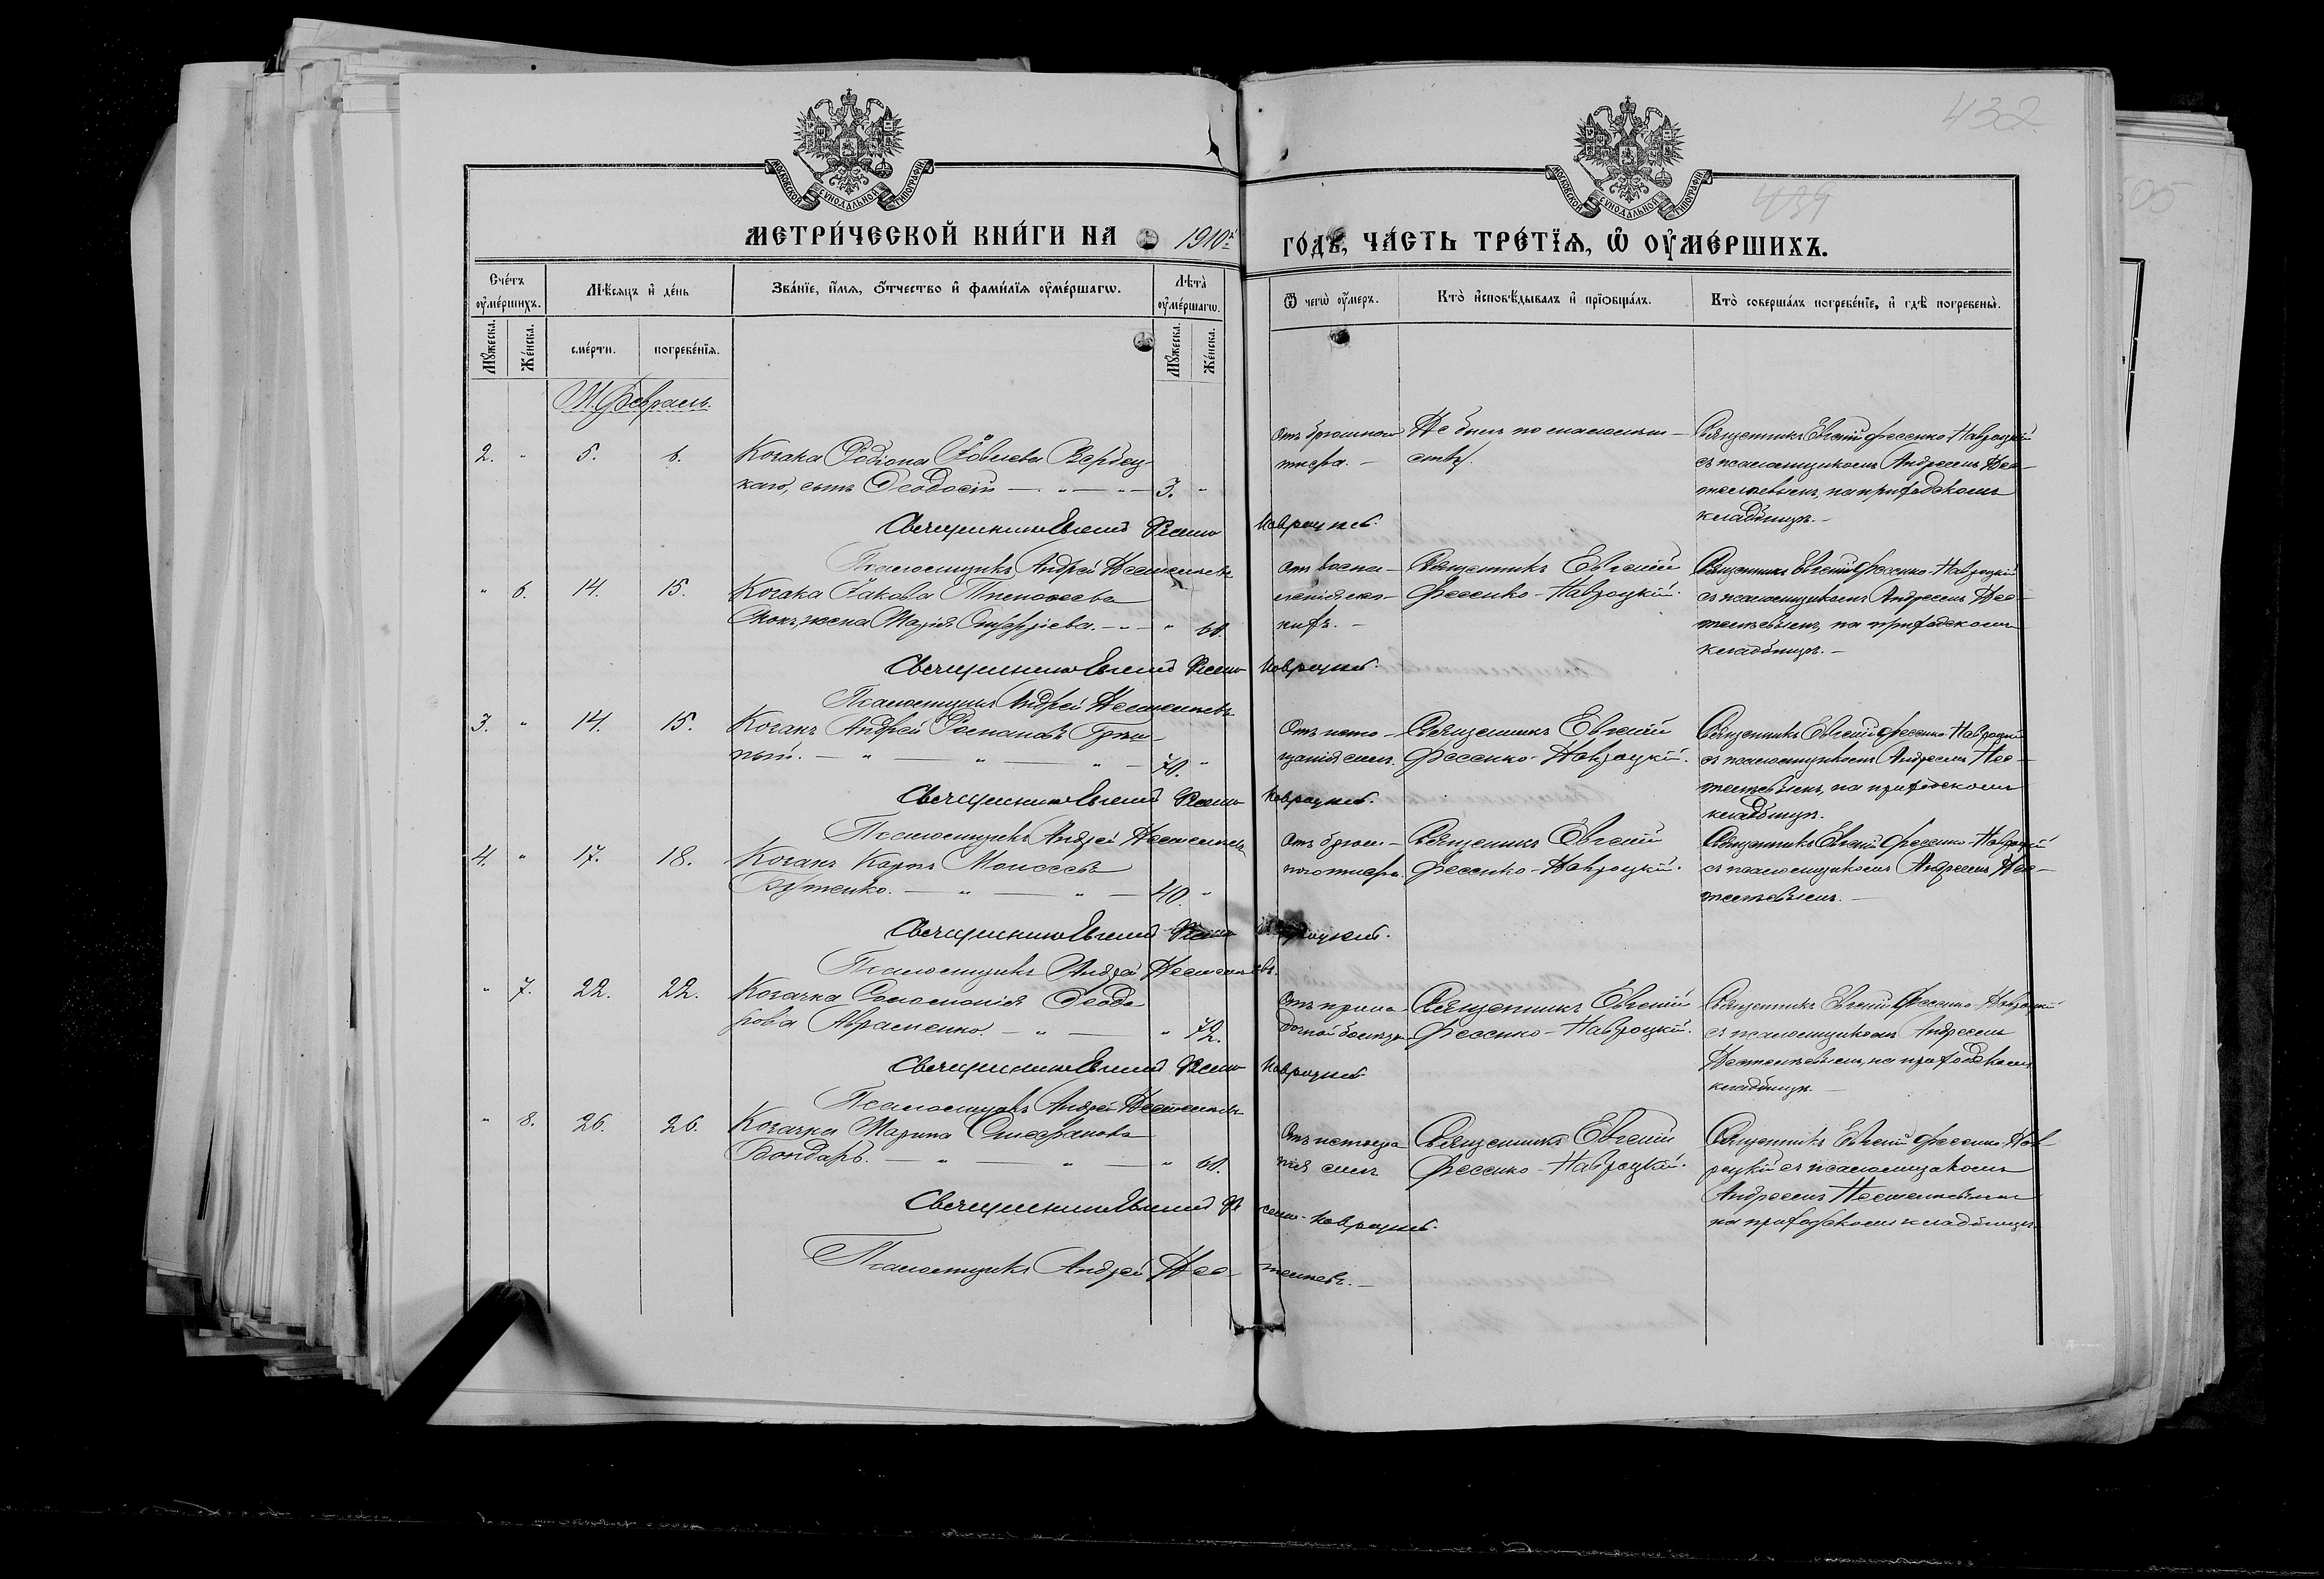 432
439
МОСКОВСКОЙ СУНОДАЛЬНОЙ ТИПОГРАФІИ
МОСКОВСКОЙ СУНОДАЛЬНОЙ ТИПОГРАФІИ
МЕТРИ́ЧЕСКОЙ КНИ́ГИ НА 1910й ГО́ДЪ, ЧА́СТЬ ТРЕ́ТЇѦ, Ѡ҆ ОУ҆МЕ́РШИХЪ.
Сче́тъ оу҆ме́ршихъ.
Мѣ́сяцъ и҆ де́нь
Зва́нїе, и҆́мя, ѻ҆́тчество и҆ фами́лїя оу҆ме́ршагѡ.
Лѣ́та оу҆ме́ршагѡ.
Ѿ чегѡ̀ оу҆́меръ.
Кто̀ и҆сповѣ́дывалъ и҆ прїѡбща́лъ.
Кто̀ соверша́лъ погребе́нїе, и҆ гдѣ̀ погребены̀.
Му́жеска.
Же́нска.
сме́рти.
погребе́нїя.
Му́жеска.
Же́нска.
М. Февраль.
2. " 5. 6. Козака Родіона Вербец-
каго, сынъ Ѳеодосій — " — " — 3. "
Отъ брюшного
тифа. —
Не былъ по малолѣт-
ству.
Священникъ Евгеній Фесенко-Навроцкій
съ псаломщикомъ Андреемъ Нес-
на приходскомъ
кладбищѣ. —
Священникъ Евгеній Фесенко Навроцкій.
Псаломщикъ Андрей
" 6. 14. 15. Козака Іакова Тимоѳеева
жена Марія — " — " 60.
Отъ воспа-
ленія лег-
кихъ. —
Священникъ Евгеній
Фесенко-Навроцкій.
Священникъ Евгеній Фесенко-Навроцкій
съ псаломщикомъ Андреемъ Нес-
на приходскомъ
кладбищѣ. —
Священникъ Евгеній Фесенко Навроцкій.
Псаломщикъ Андрей
3. " 14. 15. Козакъ Андрей Романовъ
ный. — " — " — " — 70. "
Отъ исто-
щанія силъ.
Священникъ Евгеній
Фесенко-Навроцкій.
Священникъ Евгеній Фесенко-Навроцкій
съ псаломщикомъ Андреемъ Нес-
на приходскомъ
кладбищѣ.
Священникъ Евгеній Фесенко Навроцкій.
Псаломщикъ Андрей
4. " 17. 18. Козакъ Карпъ Моисеевъ
Бутенко. — " — " — 40. "
Отъ брюш-
ного тифа.
Священникъ Евгеній
Фесенко-Навроцкій.
Священникъ Евгеній Фесенко-Навроцкій
съ псаломщикомъ Андреемъ Нес-
Священникъ Евгеній Фесенко
Псаломщикъ Андрей
" 7. 22. 22. Козачка Соломонія Ѳеодо-
рова Авраменко. — " — " 72.
Отъ припа-
дочной болѣзни
Священникъ Евгеній
Фесенко-Навроцкій.
Священникъ Евгеній Фесенко-Навроцкій
съ псаломщикомъ Андреемъ
на приходскомъ
кладбищѣ —
Священникъ Евгеній Фесенко Навроцкій
Псаломщикъ Андрей
" 8. 26. 26. Козачка Марина Стефанова
Бондарь. — " — " — " 60.
Отъ истоща-
нія силъ
Священникъ Евгеній
Фесенко-Навроцкій.
Священникъ Евгеній Фесенко-Нав-
роцкій съ псаломщикомъ
Андреемъ
на приходскомъ кладбищѣ
Священникъ Евгеній Фесенко-Навроцкій.
Псаломщикъ Андрей